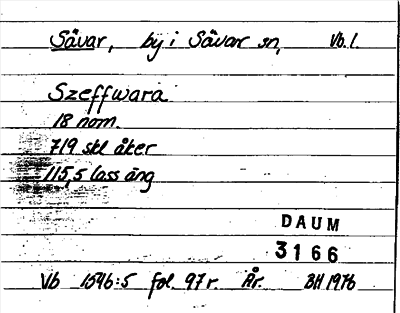 Sävar, by i Sävar sn, Vb.l.
Szeffwara
18 nom.
719 skl åker
115,5 lass äng
DAUM
3166
Vb 1546:5 fol. 97 r. År. BH 1976